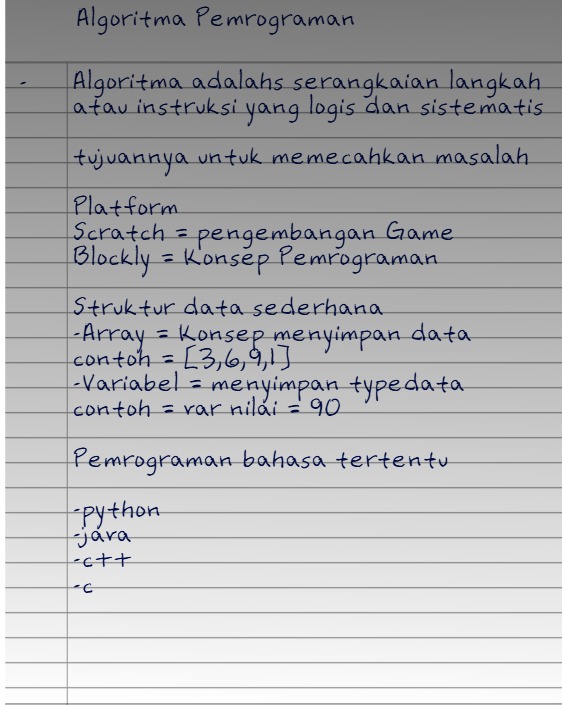 Algoritma Pemrograman
- Algoritma adalahs serangkaian langkah
atau instruksi yang logis dan sistematis
tujuannya untuk memecahkan masalah
Platform
Scratch = pengembangan Game
Blockly = Konsep Pemrograman
Struktur data sederhana
-Array = Konsep menyimpan data
contoh = [3,6,9,1]
-Variabel = menyimpan typedata
contoh = var nilai = 90
Pemrograman bahasa tertentu
-python
-java
-c++
-c